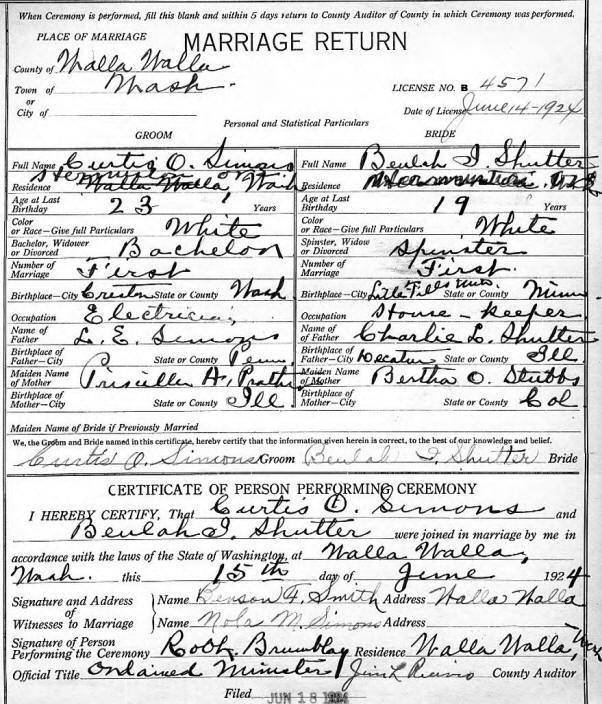 When Ceremony is performed, fill this blank and within 5 days return to County Auditor of County in which Ceremony was performed.
PLACE OF MARRIAGE
MARRIAGE RETURN
County of Walla Walla
Town of Wash.
or
City of
LICENSE NO. B 4571
Date of License June 14-1924
Personal and Statistical Particulars
GROOM BRIDE
Full Name Curtis O. Simons Full Name Beulah I. Shutter
Hermiston or
Residence Walla Walla, Wash Residence
Age at Last Birthday 23 Years Age at Last Birthday 19 Years
Color or Race—Give full Particulars White Color or Race—Give full Particulars White
Bachelor, Widower or Divorced Bachelor Spinster, Widow or Divorced Spinster
Number of Marriage First Number of Marriage First.
Birthplace—City Creston State or County Wash Birthplace—City Little Falls State or County Minn
Occupation Electrician Occupation House-keeper
Name of Father L. E. Simons Name of Father Charlie L. Shutter
Birthplace of Father—City State or County Penn. Birthplace of Father—City Decatur State or County Ill.
Maiden Name of Mother Priscilla A. Maiden Name of Mother Bertha O. Stubbs
Birthplace of Mother—City State or County Ill. Birthplace of Mother—City State or County Col.
Maiden Name of Bride if Previously Married
We, the Groom and Bride named in this certificate, hereby certify that the information given herein is correct, to the best of our knowledge and belief.
Curtis O. Simons Groom Beulah I. Shutter Bride
CERTIFICATE OF PERSON PERFORMING CEREMONY
I HEREBY CERTIFY, That Curtis O. Simons and
Beulah I. Shutter were joined in marriage by me in
accordance with the laws of the State of Washington, at Walla Walla,
Wash. this 15th day of June 1924
Signature and Address of Witnesses to Marriage
Name Benson F. Smith Address Walla Walla
Name Nola M. Simons Address
Signature of Person Performing the Ceremony Brumblay Residence Walla Walla, Wash
Official Title Ordained Minister County Auditor
Filed JUN 18 1924